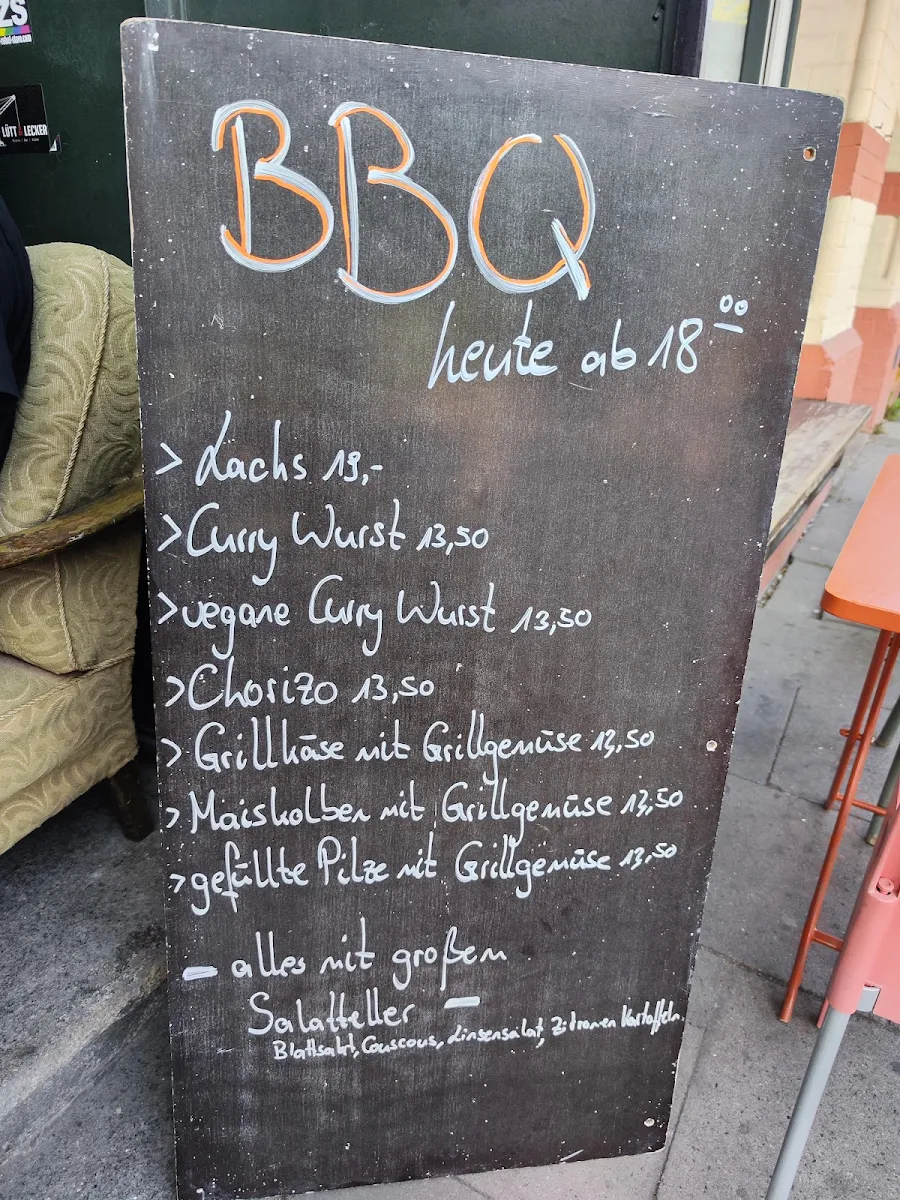 ZS
LÜTT & LECKER
BBQ
heute ab 18.00
> Lachs 19,-
> Curry Wurst 13,50
> vegane Curry Wurst 13,50
> Chorizo 13,50
> Grillkäse mit Grillgemüse 13,50
> Maiskolben mit Grillgemüse 13,50
> gefüllte Pilze mit Grillgemüse 13,50
- alles mit großem
Salatteller -
Blattsalat, Couscous, Linsensalat, Zitronen Kartoffeln.